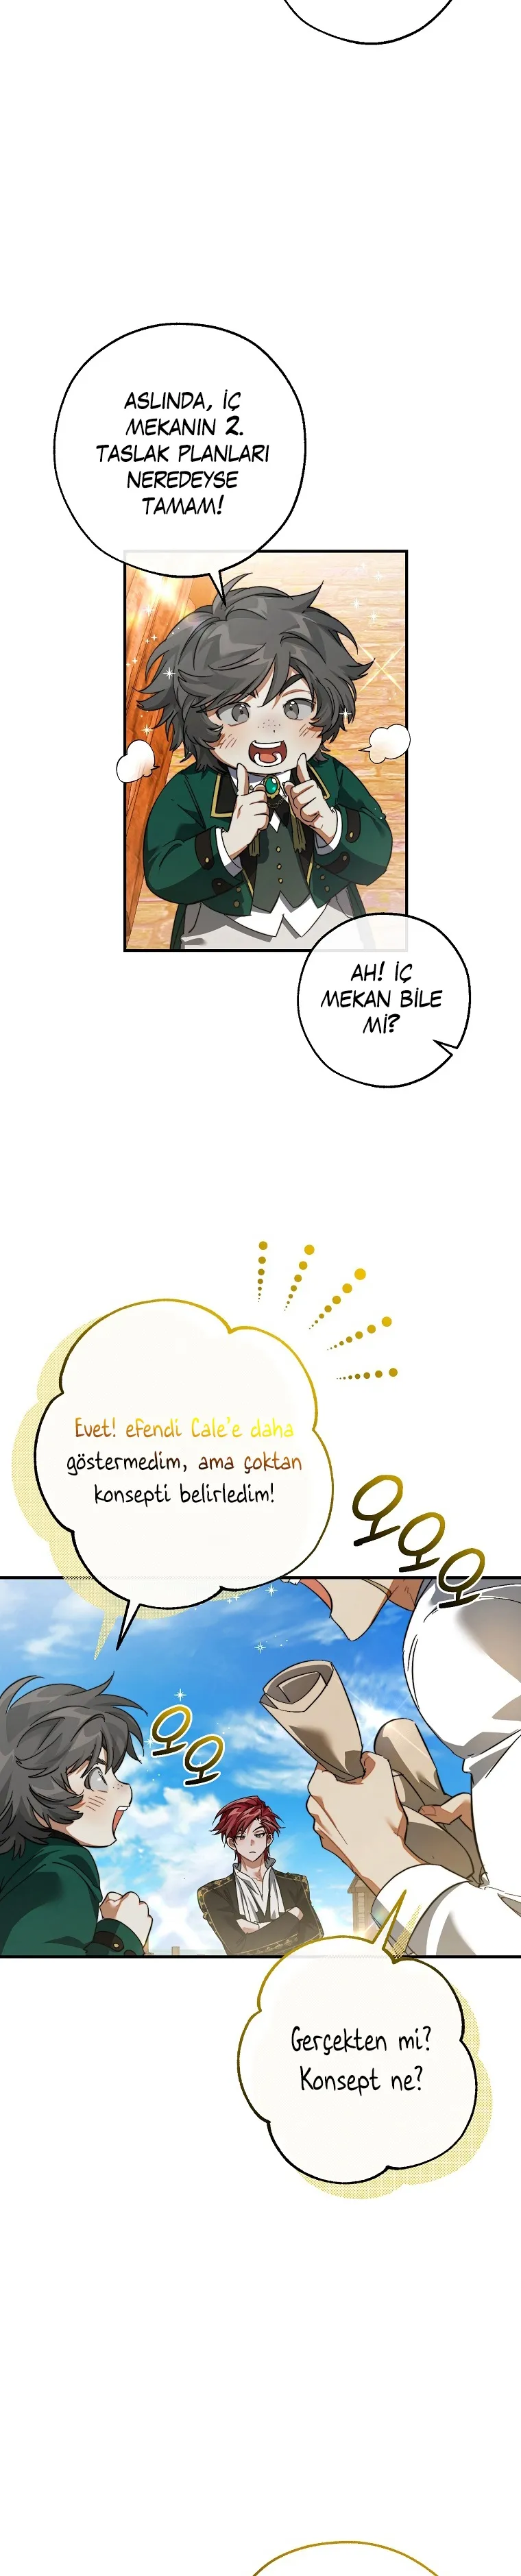 ASLINDA, İÇ
MEKANIN 2.
TASLAK PLANLARI
NEREDEYSE
TAMAM!
AH! İÇ
MEKAN BİLE
Mİ?
Evet! efendi Cale'e daha
göstermedim, ama çoktan
konsepti belirledim!
오오오
오오
Gerçekten mi?
Konsept ne?